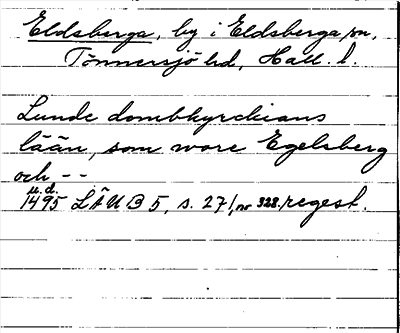 Eldsberga, by i Eldsberga sn,
Tönnersjö hd, Hall. l.
Lunde dombkyrckians
lään, som wore Egelsberg
och - -
u.d.
1495 LÄU B 5, s. 271, nr 328. regest.